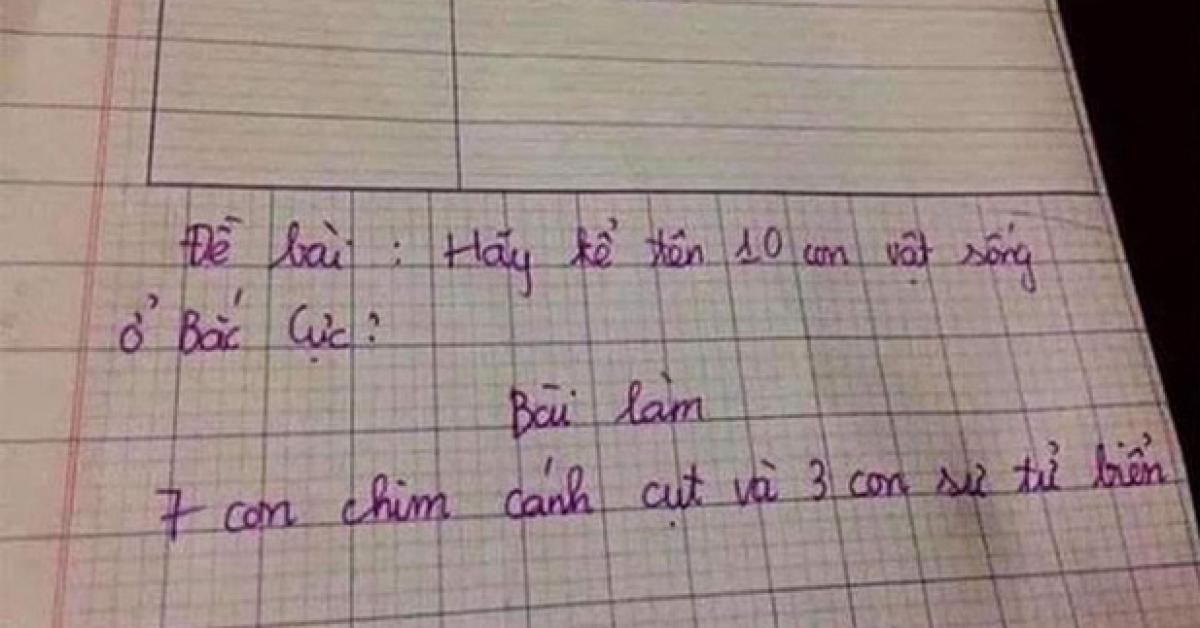 Đề bài : Hãy kể tên 10 con vật sống
ở Bắc Cực?
Bài làm
7 con chim cánh cụt và 3 con sư tử biển